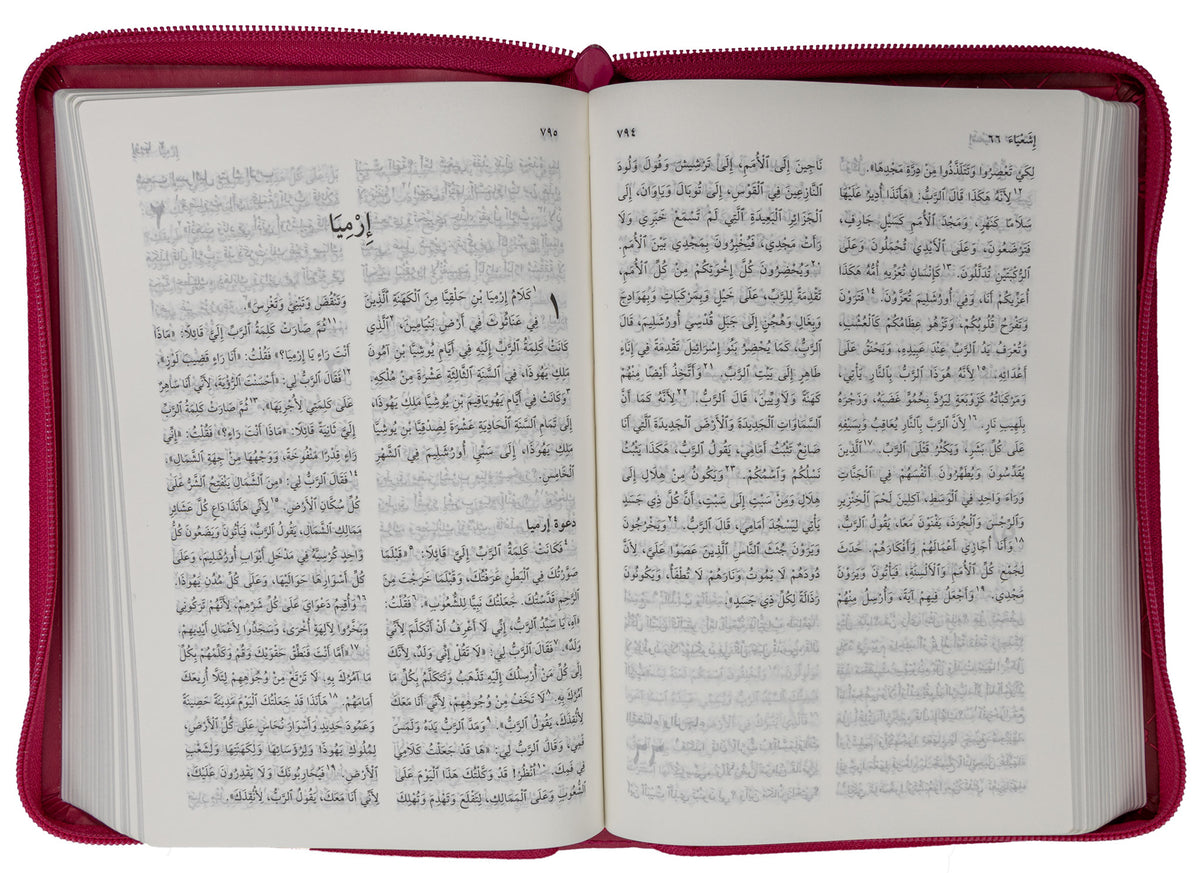 إِشَعْيَاءَ ٦٦
٧٩٤
لِكَيْ تَعْصِرُوا وَتَتَلَذَّذُوا مِنْ دِرَّةِ مَجْدِهَا».
١٢ لِأَنَّهُ هَكَذَا قَالَ ٱلرَّبُّ: «هَأَنَذَا أُدِيرُ عَلَيْهَا
سَلَامًا كَنَهْرٍ، وَمَجْدَ ٱلْأُمَمِ كَسَيْلٍ جَارِفٍ،
فَتَرْضَعُونَ، وَعَلَى ٱلْأَيْدِي تُحْمَلُونَ وَعَلَى
ٱلرُّكْبَتَيْنِ تُدَلَّلُونَ. ١٣ كَإِنْسَانٍ تُعَزِّيهِ أُمُّهُ هَكَذَا
أُعَزِّيكُمْ أَنَا، وَفِي أُورُشَلِيمَ تُعَزَّوْنَ. ١٤ فَتَرَوْنَ
وَتَفْرَحُ قُلُوبُكُمْ، وَتَزْهُو عِظَامُكُمْ كَٱلْعُشْبِ،
وَتُعْرَفُ يَدُ ٱلرَّبِّ عِنْدَ عَبِيدِهِ، وَيَحْنَقُ عَلَى
أَعْدَائِهِ. ١٥ لِأَنَّهُ هُوَذَا ٱلرَّبُّ بِٱلنَّارِ يَأْتِي،
وَمَرْكَبَاتُهُ كَزَوْبَعَةٍ لِيَرُدَّ بِحُمُوٍّ غَضَبَهُ، وَزَجْرَهُ
بِلَهِيبِ نَارٍ. ١٦ لِأَنَّ ٱلرَّبَّ بِٱلنَّارِ يُعَاقِبُ وَبِسَيْفِهِ
عَلَى كُلِّ بَشَرٍ، وَيَكْثُرُ قَتْلَى ٱلرَّبِّ. ١٧ ٱلَّذِينَ
يُقَدِّسُونَ وَيُطَهِّرُونَ أَنْفُسَهُمْ فِي ٱلْجَنَّاتِ
وَرَاءَ وَاحِدٍ فِي ٱلْوَسَطِ، آكِلِينَ لَحْمَ ٱلْخِنْزِيرِ
وَٱلرِّجْسَ وَٱلْجُرَذَ، يَفْنَوْنَ مَعًا، يَقُولُ ٱلرَّبُّ.
١٨ وَأَنَا أُجَازِي أَعْمَالَهُمْ وَأَفْكَارَهُمْ. حَدَثَ
لِجَمْعِ كُلِّ ٱلْأُمَمِ وَٱلْأَلْسِنَةِ، فَيَأْتُونَ وَيَرَوْنَ
مَجْدِي. ١٩ وَأَجْعَلُ فِيهِمْ آيَةً، وَأُرْسِلُ مِنْهُمْ
نَاجِينَ إِلَى ٱلْأُمَمِ، إِلَى تَرْشِيشَ وَفُولَ وَلُودَ
ٱلنَّازِعِينَ فِي ٱلْقَوْسِ، إِلَى تُوبَالَ وَيَاوَانَ، إِلَى
ٱلْجَزَائِرِ ٱلْبَعِيدَةِ ٱلَّتِي لَمْ تَسْمَعْ خَبَرِي وَلَا
رَأَتْ مَجْدِي، فَيُخْبِرُونَ بِمَجْدِي بَيْنَ ٱلْأُمَمِ.
٢٠ وَيُحْضِرُونَ كُلَّ إِخْوَتِكُمْ مِنْ كُلِّ ٱلْأُمَمِ،
تَقْدِمَةً لِلرَّبِّ، عَلَى خَيْلٍ وَبِمَرْكَبَاتٍ وَبِهَوَادِجَ
وَبِغَالٍ وَهُجُنٍ إِلَى جَبَلِ قُدْسِي أُورُشَلِيمَ، قَالَ
ٱلرَّبُّ، كَمَا يُحْضِرُ بَنُو إِسْرَائِيلَ تَقْدِمَةً فِي إِنَاءٍ
طَاهِرٍ إِلَى بَيْتِ ٱلرَّبِّ. ٢١ وَأَتَّخِذُ أَيْضًا مِنْهُمْ
كَهَنَةً وَلَاوِيِّينَ، قَالَ ٱلرَّبُّ. ٢٢ لِأَنَّهُ كَمَا أَنَّ
ٱلسَّمَاوَاتِ ٱلْجَدِيدَةَ وَٱلْأَرْضَ ٱلْجَدِيدَةَ ٱلَّتِي أَنَا
صَانِعٌ تَثْبُتُ أَمَامِي، يَقُولُ ٱلرَّبُّ، هَكَذَا يَثْبُتُ
نَسْلُكُمْ وَٱسْمُكُمْ. ٢٣ وَيَكُونُ مِنْ هِلَالٍ إِلَى
هِلَالٍ وَمِنْ سَبْتٍ إِلَى سَبْتٍ، أَنَّ كُلَّ ذِي جَسَدٍ
يَأْتِي لِيَسْجُدَ أَمَامِي، قَالَ ٱلرَّبُّ. ٢٤ وَيَخْرُجُونَ
وَيَرَوْنَ جُثَثَ ٱلنَّاسِ ٱلَّذِينَ عَصَوْا عَلَيَّ، لِأَنَّ
دُودَهُمْ لَا يَمُوتُ وَنَارَهُمْ لَا تُطْفَأُ، وَيَكُونُونَ
رَذَالَةً لِكُلِّ ذِي جَسَدٍ».
٧٩٥
إِرْمِيَا
١
١ كَلَامُ إِرْمِيَا بْنِ حَلْقِيَّا مِنَ ٱلْكَهَنَةِ ٱلَّذِينَ
فِي عَنَاثُوثَ فِي أَرْضِ بَنْيَامِينَ، ٢ ٱلَّذِي
كَانَتْ كَلِمَةُ ٱلرَّبِّ إِلَيْهِ فِي أَيَّامِ يُوشِيَّا بْنِ آمُونَ
مَلِكِ يَهُوذَا، فِي ٱلسَّنَةِ ٱلثَّالِثَةِ عَشْرَةَ مِنْ مُلْكِهِ.
٣ وَكَانَتْ فِي أَيَّامِ يَهُويَاقِيمَ بْنِ يُوشِيَّا مَلِكِ يَهُوذَا،
إِلَى تَمَامِ ٱلسَّنَةِ ٱلْحَادِيَةِ عَشْرَةَ لِصِدْقِيَّا بْنِ يُوشِيَّا
مَلِكِ يَهُوذَا، إِلَى سَبْيِ أُورُشَلِيمَ فِي ٱلشَّهْرِ
ٱلْخَامِسِ.
دعوة إرميا
٤ فَكَانَتْ كَلِمَةُ ٱلرَّبِّ إِلَيَّ قَائِلًا: ٥ «قَبْلَمَا
صَوَّرْتُكَ فِي ٱلْبَطْنِ عَرَفْتُكَ، وَقَبْلَمَا خَرَجْتَ مِنَ
ٱلرَّحِمِ قَدَّسْتُكَ. جَعَلْتُكَ نَبِيًّا لِلشُّعُوبِ». ٦ فَقُلْتُ:
«آهِ، يَا سَيِّدُ ٱلرَّبُّ، إِنِّي لَا أَعْرِفُ أَنْ أَتَكَلَّمَ لِأَنِّي
وَلَدٌ». ٧ فَقَالَ ٱلرَّبُّ لِي: «لَا تَقُلْ إِنِّي وَلَدٌ، لِأَنَّكَ
إِلَى كُلِّ مَنْ أُرْسِلُكَ إِلَيْهِ تَذْهَبُ وَتَتَكَلَّمُ بِكُلِّ مَا
آمُرُكَ بِهِ. ٨ لَا تَخَفْ مِنْ وُجُوهِهِمْ، لِأَنِّي أَنَا مَعَكَ
لِأُنْقِذَكَ، يَقُولُ ٱلرَّبُّ». ٩ وَمَدَّ ٱلرَّبُّ يَدَهُ وَلَمَسَ
فَمِي، وَقَالَ ٱلرَّبُّ لِي: «هَا قَدْ جَعَلْتُ كَلَامِي
فِي فَمِكَ. ١٠ اُنْظُرْ! قَدْ وَكَّلْتُكَ هَذَا ٱلْيَوْمَ عَلَى
ٱلشُّعُوبِ وَعَلَى ٱلْمَمَالِكِ، لِتَقْلَعَ وَتَهْدِمَ وَتُهْلِكَ
وَتَنْقُضَ وَتَبْنِيَ وَتَغْرِسَ».
١١ ثُمَّ صَارَتْ كَلِمَةُ ٱلرَّبِّ إِلَيَّ قَائِلًا: «مَاذَا
أَنْتَ رَاءٍ يَا إِرْمِيَا؟» فَقُلْتُ: «أَنَا رَاءٍ قَضِيبَ لَوْزٍ».
١٢ فَقَالَ ٱلرَّبُّ لِي: «أَحْسَنْتَ ٱلرُّؤْيَةَ، لِأَنِّي أَنَا سَاهِرٌ
عَلَى كَلِمَتِي لِأُجْرِيَهَا». ١٣ ثُمَّ صَارَتْ كَلِمَةُ ٱلرَّبِّ
إِلَيَّ ثَانِيَةً قَائِلًا: «مَاذَا أَنْتَ رَاءٍ؟» فَقُلْتُ: «إِنِّي
رَاءٍ قِدْرًا مَنْفُوخَةً، وَوَجْهُهَا مِنْ جِهَةِ ٱلشِّمَالِ».
١٤ فَقَالَ ٱلرَّبُّ لِي: «مِنَ ٱلشِّمَالِ يَنْفَتِحُ ٱلشَّرُّ عَلَى
كُلِّ سُكَّانِ ٱلْأَرْضِ. ١٥ لِأَنِّي هَأَنَذَا دَاعٍ كُلَّ عَشَائِرِ
مَمَالِكِ ٱلشِّمَالِ، يَقُولُ ٱلرَّبُّ، فَيَأْتُونَ وَيَضَعُونَ كُلُّ
وَاحِدٍ كُرْسِيَّهُ فِي مَدْخَلِ أَبْوَابِ أُورُشَلِيمَ، وَعَلَى
كُلِّ أَسْوَارِهَا حَوَالَيْهَا، وَعَلَى كُلِّ مُدُنِ يَهُوذَا.
١٦ وَأُقِيمُ دَعْوَايَ عَلَى كُلِّ شَرِّهِمْ، لِأَنَّهُمْ تَرَكُونِي
وَبَخَّرُوا لِآلِهَةٍ أُخْرَى، وَسَجَدُوا لِأَعْمَالِ أَيْدِيهِمْ.
١٧ «أَمَّا أَنْتَ فَنَطِّقْ حَقْوَيْكَ وَقُمْ وَكَلِّمْهُمْ بِكُلِّ
مَا آمُرُكَ بِهِ. لَا تَرْتَعْ مِنْ وُجُوهِهِمْ لِئَلَّا أُرِيعَكَ
أَمَامَهُمْ. ١٨ هَأَنَذَا قَدْ جَعَلْتُكَ ٱلْيَوْمَ مَدِينَةً حَصِينَةً
وَعَمُودَ حَدِيدٍ وَأَسْوَارَ نُحَاسٍ عَلَى كُلِّ ٱلْأَرْضِ،
لِمُلُوكِ يَهُوذَا وَلِرُؤَسَائِهَا وَلِكَهَنَتِهَا وَلِشَعْبِ
ٱلْأَرْضِ. ١٩ فَيُحَارِبُونَكَ وَلَا يَقْدِرُونَ عَلَيْكَ،
لِأَنِّي أَنَا مَعَكَ، يَقُولُ ٱلرَّبُّ، لِأُنْقِذَكَ».